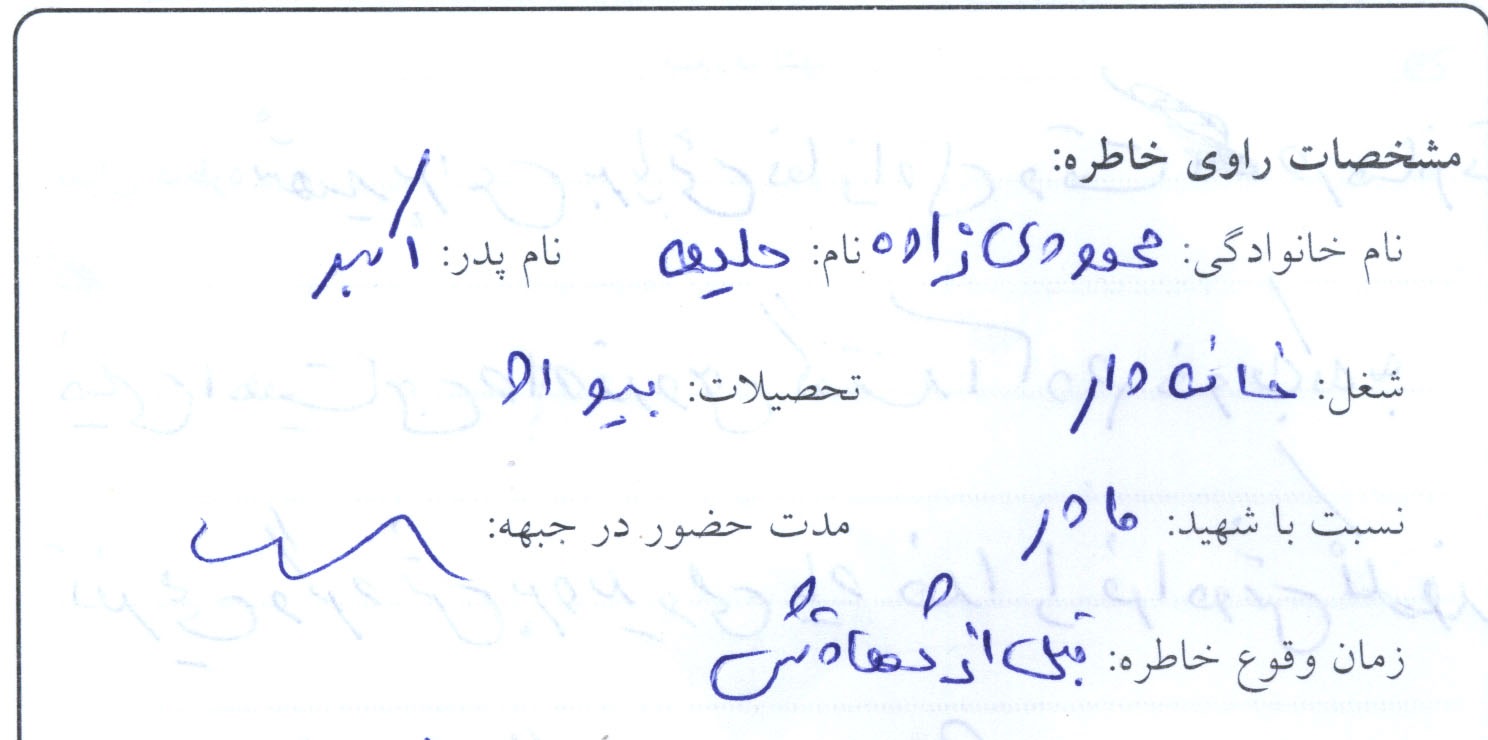 مشخصات راوی خاطره:
نام خانوادگی: محمودی زاده نام: حلیمه نام پدر: اکبر
شغل: خانه دار تحصیلات: بیسواد
نسبت با شهید: مادر مدت حضور در جبهه:
زمان وقوع خاطره: قبل از شهادتش